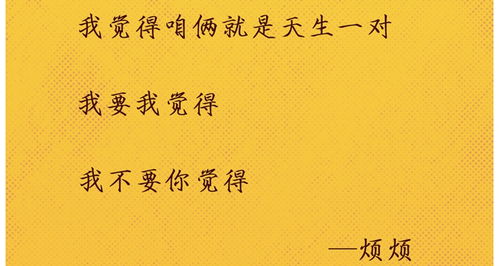 我觉得咱俩就是天生一对
我要我觉得
我不要你觉得
—烦烦